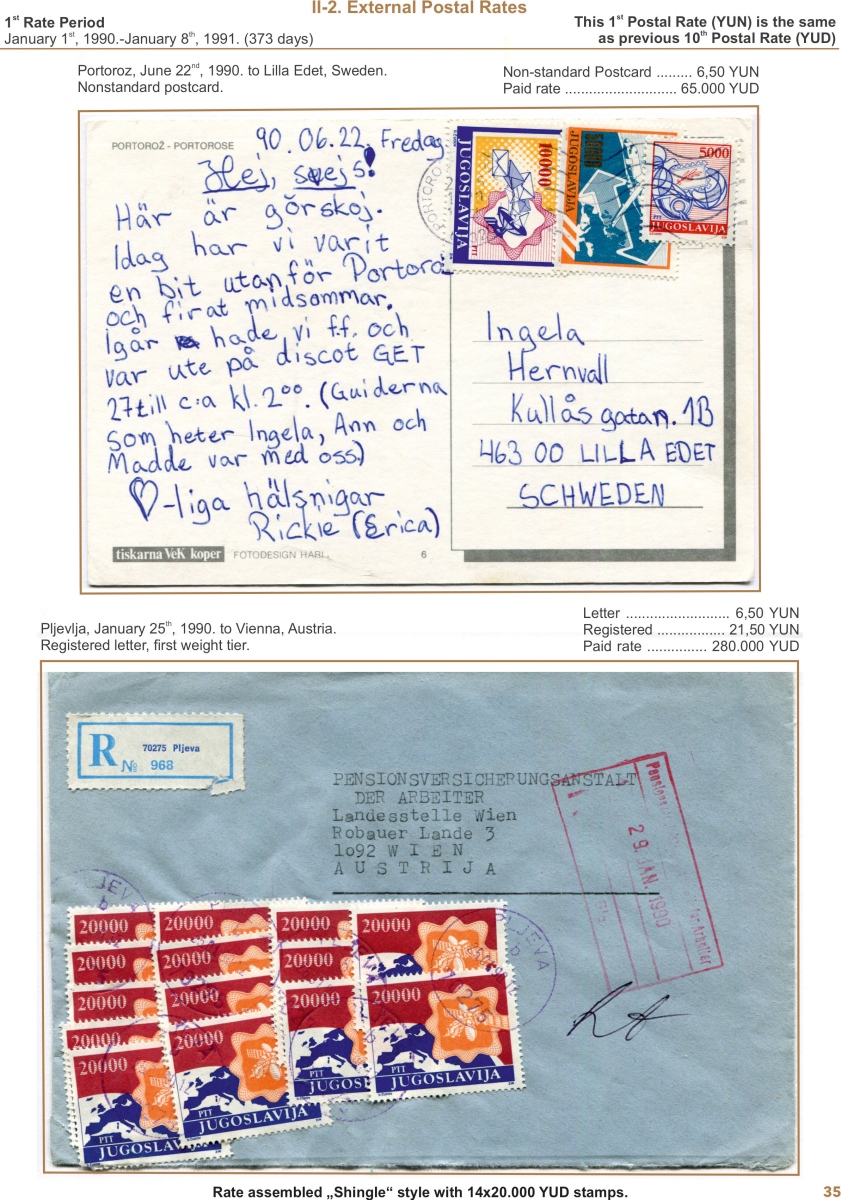 II-2. External Postal Rates
1st Rate Period
January 1st, 1990.-January 8th, 1991. (373 days)
This 1st Postal Rate (YUN) is the same
as previous 10th Postal Rate (YUD)
Portoroz, June 22nd, 1990. to Lilla Edet, Sweden.
Nonstandard postcard.
Non-standard Postcard ......... 6,50 YUN
Paid rate ............................ 65.000 YUD
PORTOROŽ - PORTOROSE
90.06.22. Fredag
Hej, svejs!
Här är görskoj.
Idag har vi varit
en bit utanför Portoro
och firat midsommar.
Igår hade vi f.f. och
var ute på discot GET
27 till c:a kl. 2⁰⁰. (Guiderna
som heter Ingela, Ann och
Madde var med oss.)
♡-liga hälsnigar
Rickie (Erica)
tiskarna VeK koper
FOTODESIGN HARI
6
10000
JUGOSLAVIJA
PTT
JUGOSLAVIJA
5000
PTT
JUGOSLAVIJA
Ingela
Hernvall
Kullåsgatan. 1B
463 00 LILLA EDET
SCHWEDEN
Pljevlja, January 25th, 1990. to Vienna, Austria.
Registered letter, first weight tier.
Letter .......................... 6,50 YUN
Registered ................. 21,50 YUN
Paid rate ............... 280.000 YUD
R
70275 Pljeva
No 968
PENSIONSVERSICHERUNGSANSTALT
DER ARBEITER
Landesstelle Wien
Robauer Lande 3
1o92 W I E N
A U S T R I J A
29. JAN. 1990
der Arbeiter
20000
20000
20000
20000
20000
20000
20000
20000
20000
20000
20000
20000
20000
20000
PTT
JUGOSLAVIJA
PTT
JUGOSLAVIJA
JUGOS
PTT
JUGOSLAVIJA
Rate assembled „Shingle“ style with 14x20.000 YUD stamps.
35